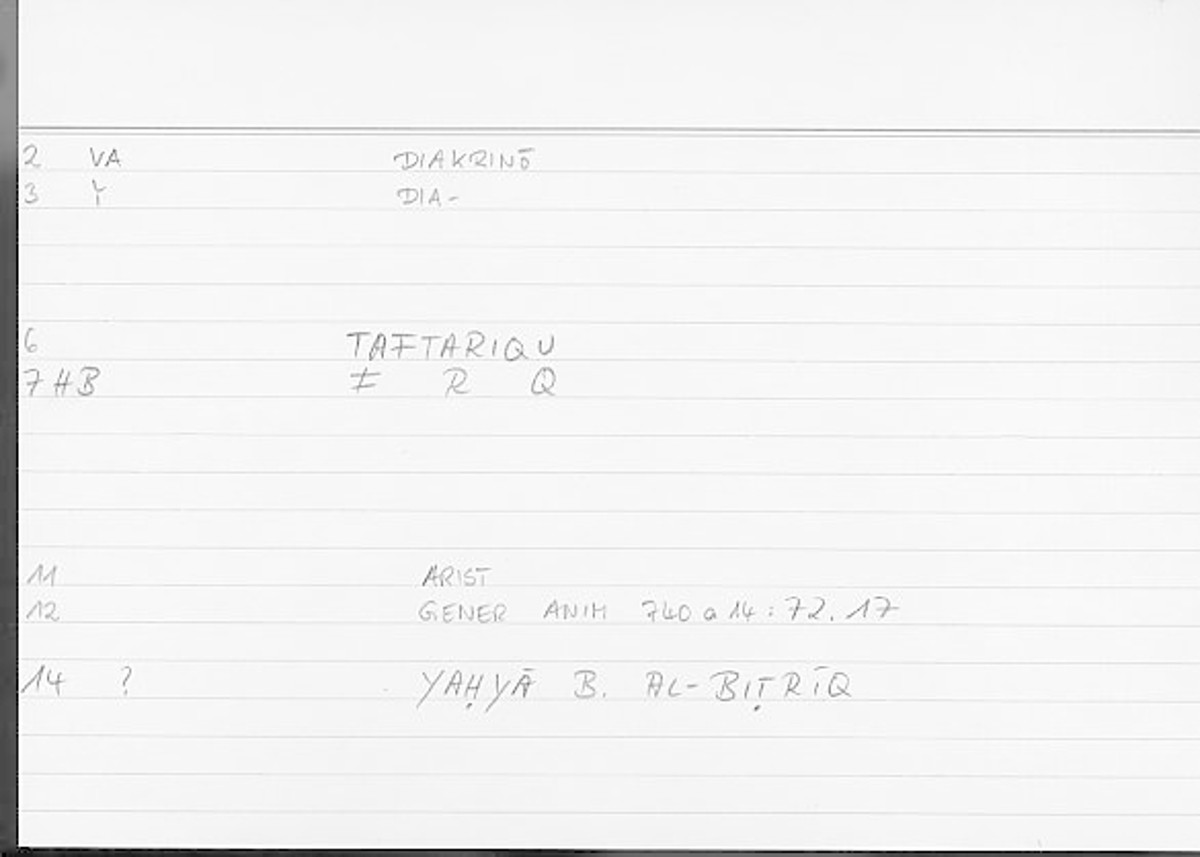 2 VA DIAKRINŌ
3 Y DIA-
6 TAFTARIQU
7 HB F R Q
11 ARIST
12 GENER ANIM 740 a 14 : 72. 17
14 ? YAḤYĀ B. AL-BIṬRĪQ